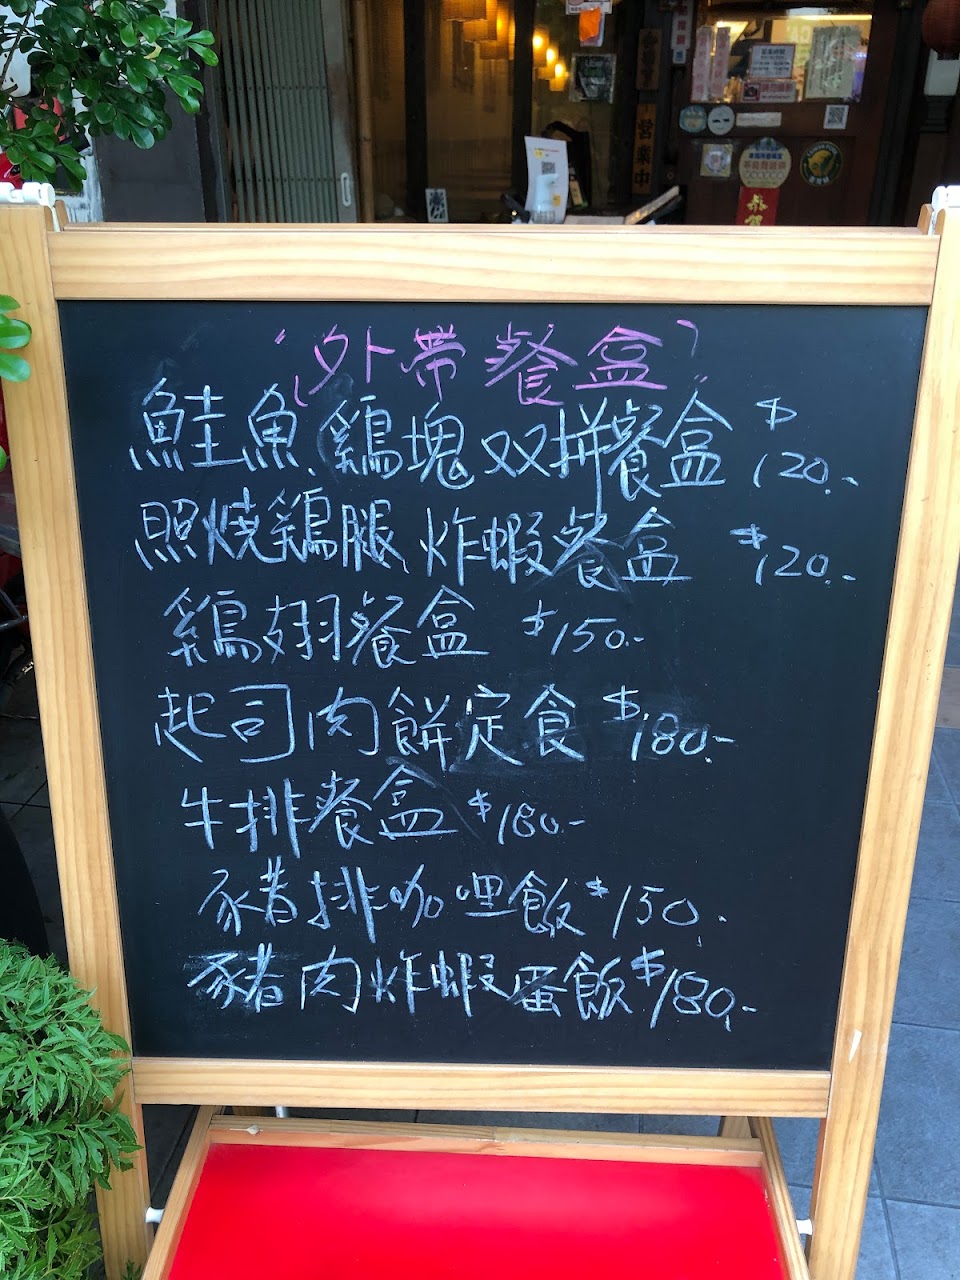 營業中
恭
外帶餐盒
鮭魚、雞塊双拼餐盒 $120.-
照燒雞腿炸蝦餐盒 $120.-
雞翅餐盒 $150.-
起司肉餅定食 $180.-
牛排餐盒 $180.-
豬排咖哩飯 $150.
豬肉炸蝦蛋飯 $180.-